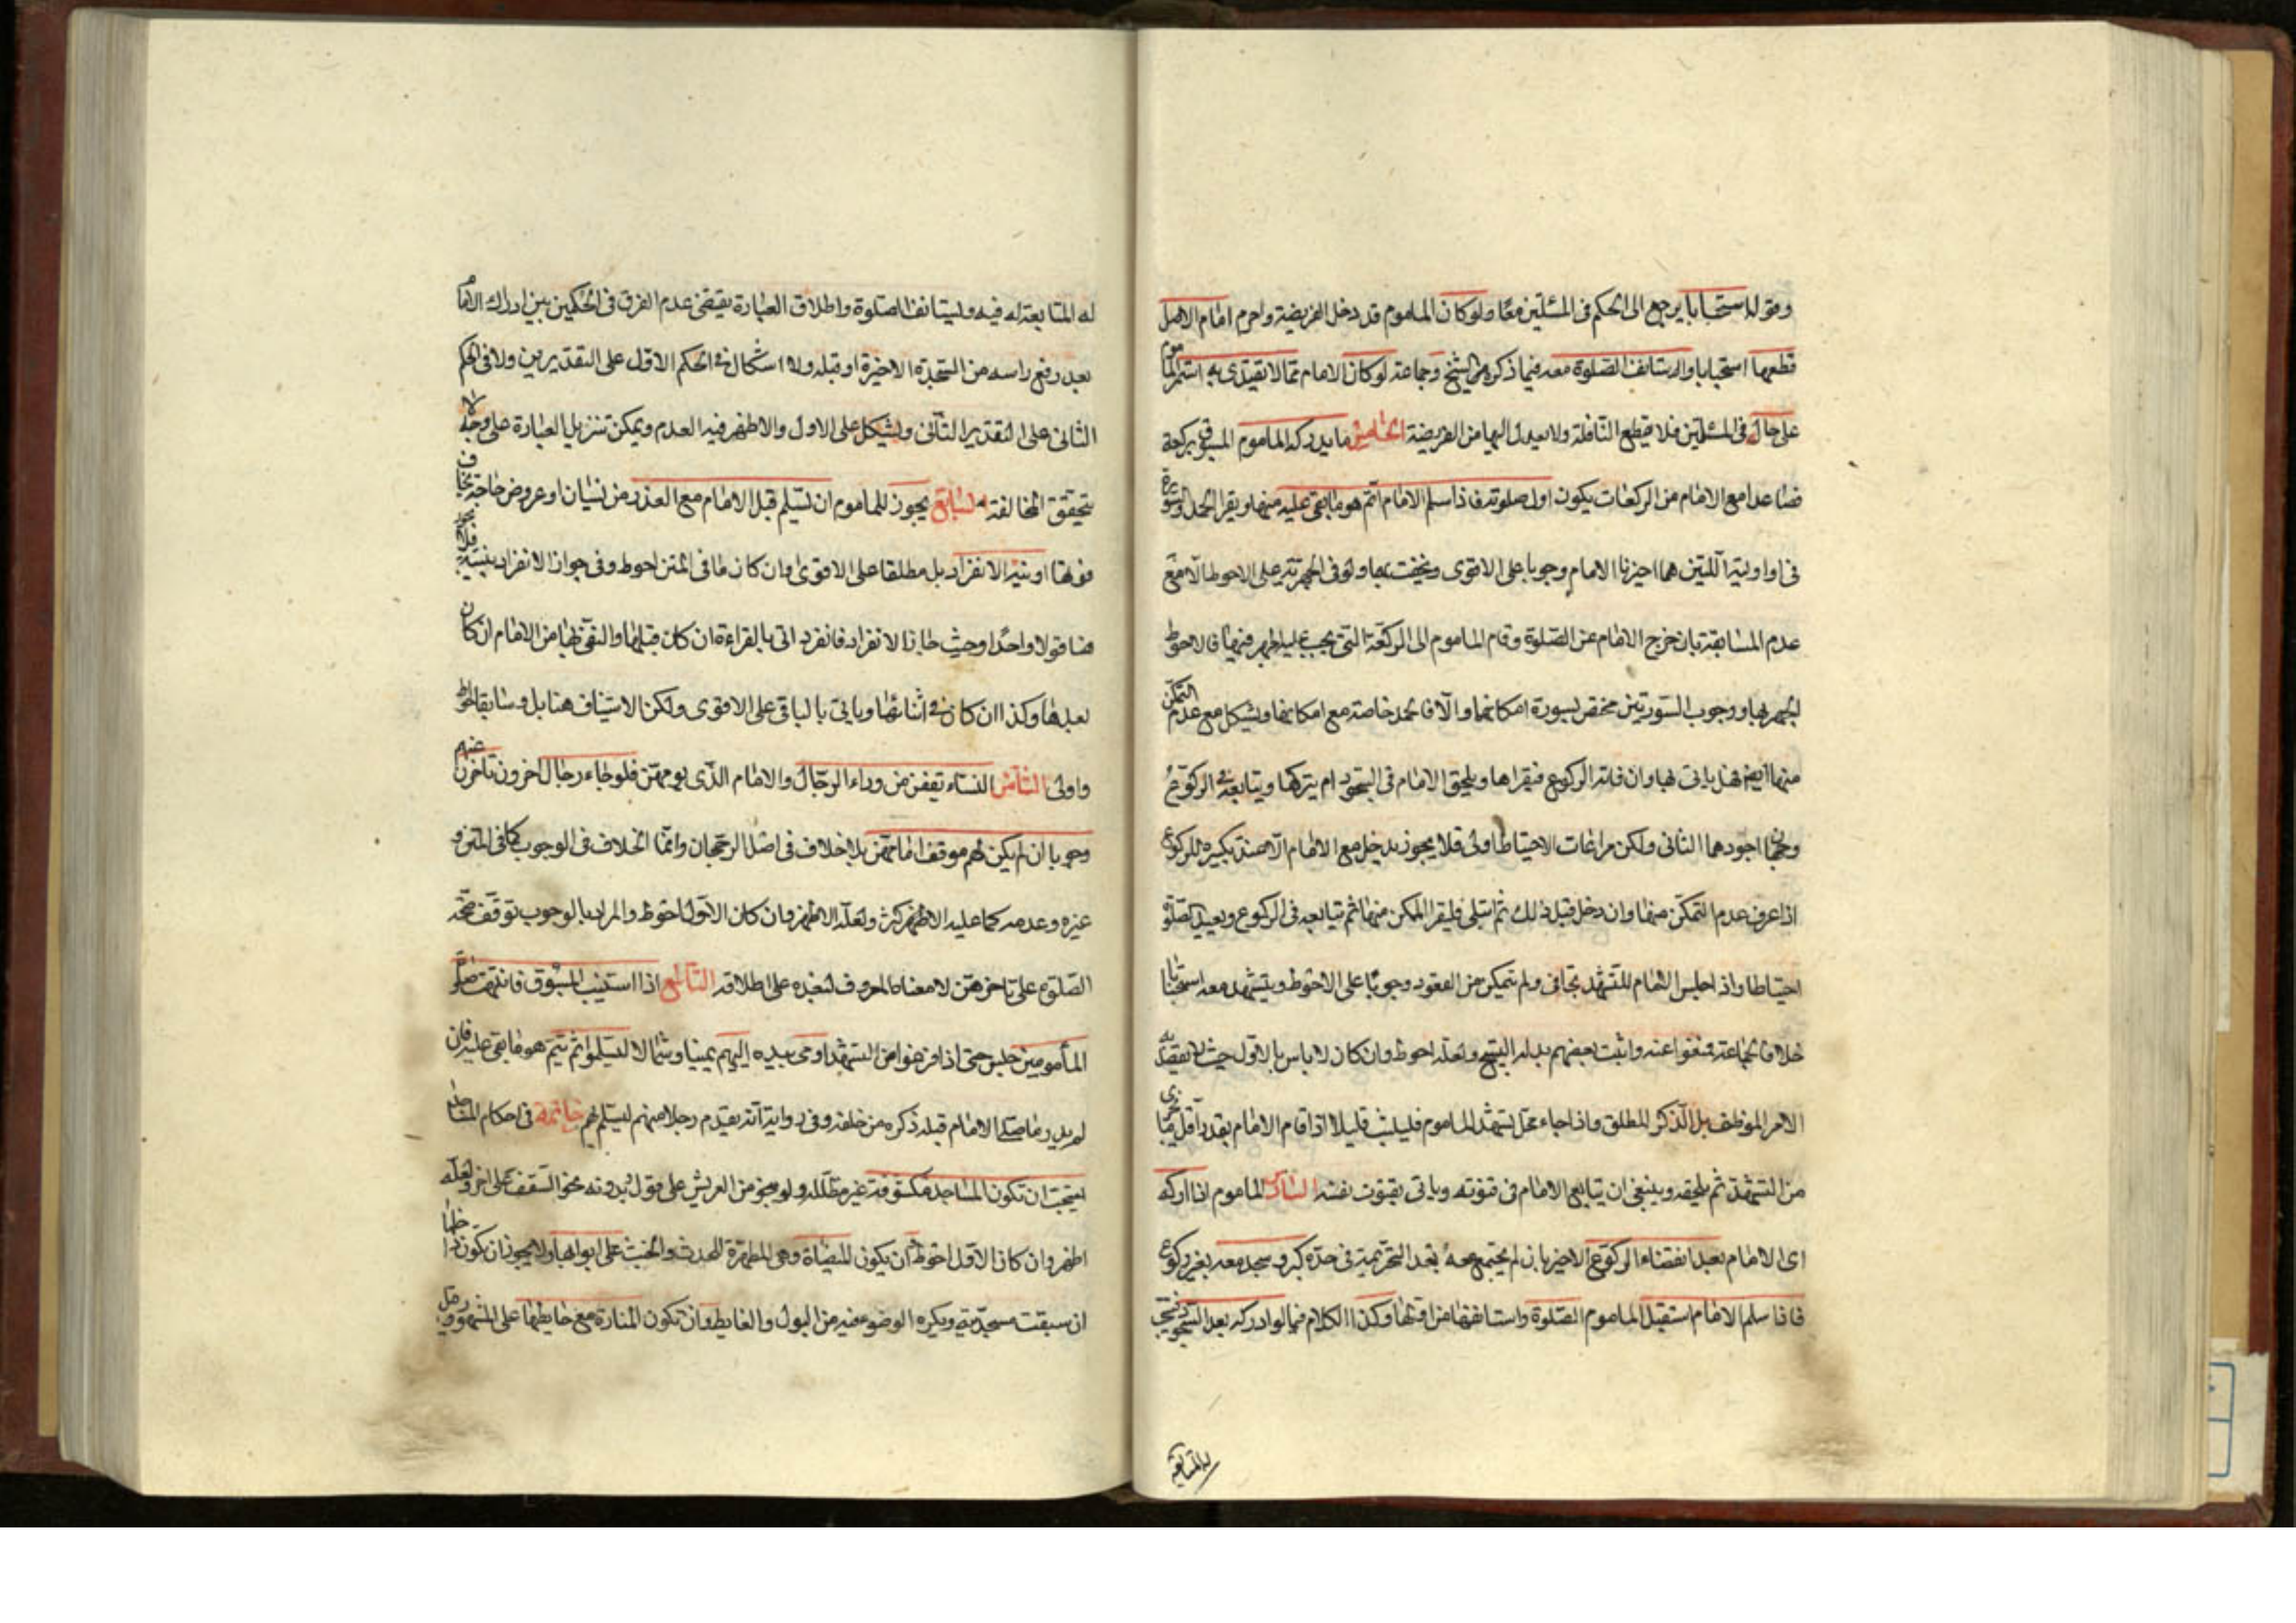 وقوله استحبابا يرجع الى الحكم فى المسئلتين معًا ولو كان الماموم قد دخل الفريضة واحرم امام الاصل
قطعها استحبابا واستانف الصلوة معه فيما ذكره الشيخ وجماعة لو كان الامام ممّا لا يقتدى به استمر الماموم
على حاله فى المسئلتين فلا يقطع النافلة ولا يعدل اليها من الفريضة الخامس ما يدركه الماموم المسبوق بركعة
فصاعدا مع الامام من الركعات يكون اول صلوته فاذا سلم الامام اتمّ هو ما بقى عليه منها ويقرا الحمد والسورة
فى اوليتيه اللتين هما اخيرتا الامام وجوبا على الاقوى ويخفت بها ولو فى الجهرية على الاحوط الا مع
عدم المسابقة بان خرج الامام عن الصلوة وقام الماموم الى الركعة التى يجب عليه الجهر فيها فالاحوط
الجهر بها ووجوب السورتين مختص بصورة امكانهما والّا فالحمد خاصة مع امكانها ويشكل مع عدم التمكّن
منها ايضا فهل ياتى بها وان فاته الركوع فيقراها ويلحق الامام فى السجود ام يتركها ويتابعه فى الركوع
وجهان اجودهما الثانى ولكن مراعات الاحتياط اولى فلا يجوز يدخل مع الامام الّا عند تكبيره للركوع
اذا عرف عدم التمكّن منها وان دخل قبل ذلك ثم ابتلى فليقرا الممكن منها ثم يتابعه فى الركوع ويعيد الصلوة
احتياطا واذا جلس الامام للتشهد تجافى ولم يتمكن من القعود وجوبًا على الاحوط ويتشهد معه استحبابا
خلافا لجماعة فمنعوا عنه واثبت بعضهم بدله التسبيح ولعله احوط وان كان لا باس بالاول حيث لا يقصد به
الامر الموظف بل الذكر المطلق واذا جاء محل تشهد الماموم فليلبث قليلا اذا قام الامام بقدر اقل ما يجزى
من التشهد ثم يلحقه وينبغى ان يتابع الامام فى قنوته وياتى بقنوت نفسه السادس الماموم اذا ادركه
اى الامام بعد انقضاء الركوع الاخير بان لم يجتمع معه بعد التحريمة فى حدّه كبر وسجد معه بغير ركوع
فاذا سلم الامام استقبل الماموم الصلوة واستانفها من اولها وكذا الكلام فيما لو ادركه بعد السجود فتجب
له المتابعة
له المتابعة له فيه وليستانف الصلوة واطلاق العبارة يقتضى عدم الفرق فى الحكمين بين ادراك الامام
بعد رفع راسه من السجدة الاخيرة او قبله ولا اشكال فى الحكم الاول على التقديرين ولا فى الحكم
الثانى على التقدير الثانى ويشكل على الاول والاظهر فيه العدم ويمكن تنزيل العبارة على وجه لا
يتحقق المخالفة السابع يجوز للماموم ان يسلم قبل الامام مع العذر من نسيان او عروض حاجة يخاف
فوتها او بنية الانفراد بل مطلقا على الاقوى وان كان ما فى المتن احوط وفى جواز الانفراد بنيته
هنا قولا واحدًا وحيث جاز الانفراد فانفرد اتى بالقراءة ان كان قبلها والتقى بها من الامام ان كان
بعدها وكذا ان كان فى اثنائها وياتى بالباقى على الاقوى ولكن الاستيناف هنا بل وسابقا احوط
واولى الثامن النساء يقفن من وراء الرجال والامام الذى يؤمهن فلو جاء رجال اخرون تاخرن عنهم
وجوبا ان لم يكن لهم موقف امامهن بلا خلاف فى اصل الرجحان وانّما الخلاف فى الوجوب كما فى المتن و
غيره وعدمه كما عليه الاكثر ولعله الاظهر وان كان الاول احوط والمراد بالوجوب توقف صحة
الصلوة على تاخرهن لا معناه المعروف لبعده على اطلاقه التاسع اذا استنيب المسبوق فانتهت صلوة
المأمومين جلس حتى اذا فرغوا من التشهد اومى بيده اليهم يمينا وشمالا ليسلموا ثم يتم هو ما بقى عليه فان
لم يدر ما صلى الامام قبله ذكره من خلفه وفى رواية انه يقدم رجلا منهم ليسلم بهم خاتمة فى احكام المساجد
يستحب ان تكون المساجد مكشوفة غير مظللة ولو بنحو من العريش على قول وبدونه نحو السقف على اخر ولعله
اظهر وان كان الاول احوط ان يكون الميضاة وهى المطهرة للحدث والخبث على ابوابها ولا يجوز ان تكون داخلها
ان سبقت مسجديته ويكره الوضوء فيه من البول والغايط وان تكون المنارة مع حايطها على المشهور وقيل